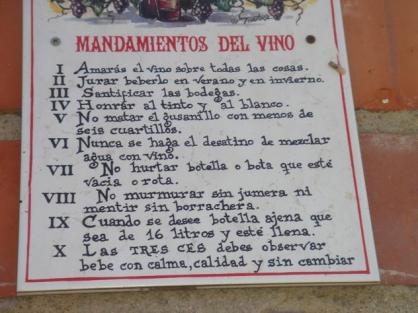 MANDAMIENTOS DEL VINO
I Amarás el vino sobre todas las cosas.
II Jurar beberlo en verano y en invierno.
III Santificar las bodegas.
IV Honrar al tinto y al blanco.
V No matar el gusanillo con menos de
seis cuartillos.
VI Nunca se haga el desatino de mezclar
agua con vino.
VII No hurtar botella o bota que esté
vacia o rota.
VIII No murmurar sin jumera ni
mentir sin borrachera.
IX Cuando se desee botella ajena que
sea de 16 litros y esté llena.
X Las TRES CES debes observar
bebe con calma, calidad y sin cambiar